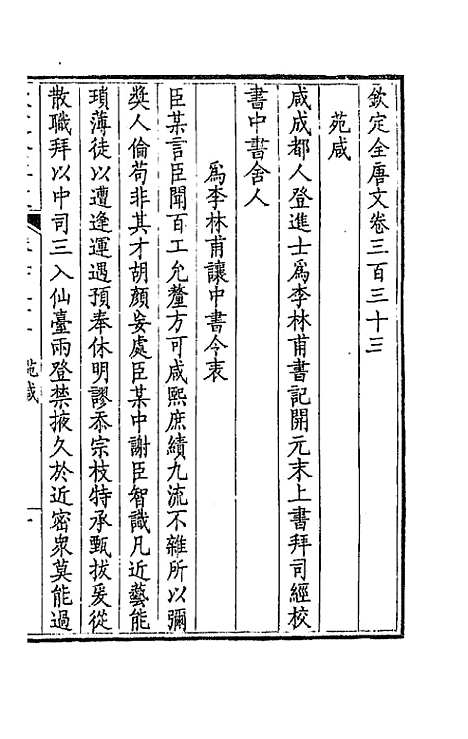 欽定全唐文卷三百三十三
苑咸
咸成都人登進士爲李林甫書記開元末上書拜司經校
書中書舍人
爲李林甫讓中書令表
臣某言臣聞百工允釐方可咸熙庶績九流不雜所以彌
奬人倫苟非其才胡顏妄處臣某中謝臣智識凡近藝能
瑣薄徒以遭逢運遇預奉休明謬忝宗枝特承甄拔爰從
散職拜以中司三入仙臺兩登禁掖久於近密衆莫能過
苑咸
一